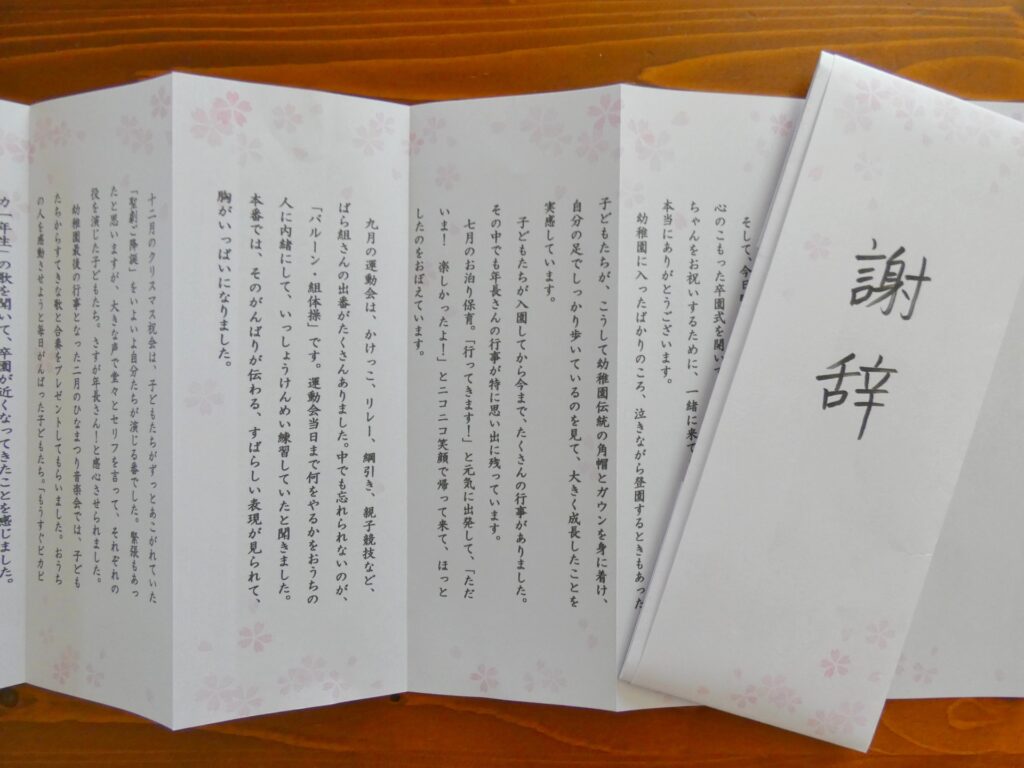 謝辞
そして、今日
心のこもった卒園式を開いて
ちゃんをお祝いするために、一緒に来て
本当にありがとうございます。
幼稚園に入ったばかりのころ、泣きながら登園するときもあった
子どもたちが、こうして幼稚園伝統の角帽とガウンを身に着け、
自分の足でしっかり歩いているのを見て、大きく成長したことを
実感しています。
子どもたちが入園してから今まで、たくさんの行事がありました。
その中でも年長さんの行事が特に思い出に残っています。
七月のお泊り保育。「行ってきます!」と元気に出発して、「ただ
いま! 楽しかったよー!」とニコニコ笑顔で帰って来て、ほっと
したのをおぼえています。
九月の運動会は、かけっこ、リレー、綱引き、親子競技など、
ばら組さんの出番がたくさんありました。中でも忘れられないのが、
「バルーン・組体操」です。運動会当日まで何をやるかをおうちの
人に内緒にして、いっしょうけんめい練習していたと聞きました。
本番では、そのがんばりが伝わる、すばらしい表現が見られて、
胸がいっぱいになりました。
十二月のクリスマス祝会は、子どもたちがずっとあこがれていた
「聖劇ご降誕」をいよいよ自分たちが演じる番でした。緊張もあっ
たと思いますが、大きな声で堂々とセリフを言って、それぞれの
役を演じた子どもたち。さすが年長さん!と感心させられました。
幼稚園最後の行事となった二月のひなまつり音楽会では、子ども
たちからすてきな歌と合奏をプレゼントしてもらいました。おうち
の人を感動させようと毎日がんばった子どもたち。「もうすぐピカピ
カ一年生」の歌を聞いて、卒園が近くなってきたことを感じました。